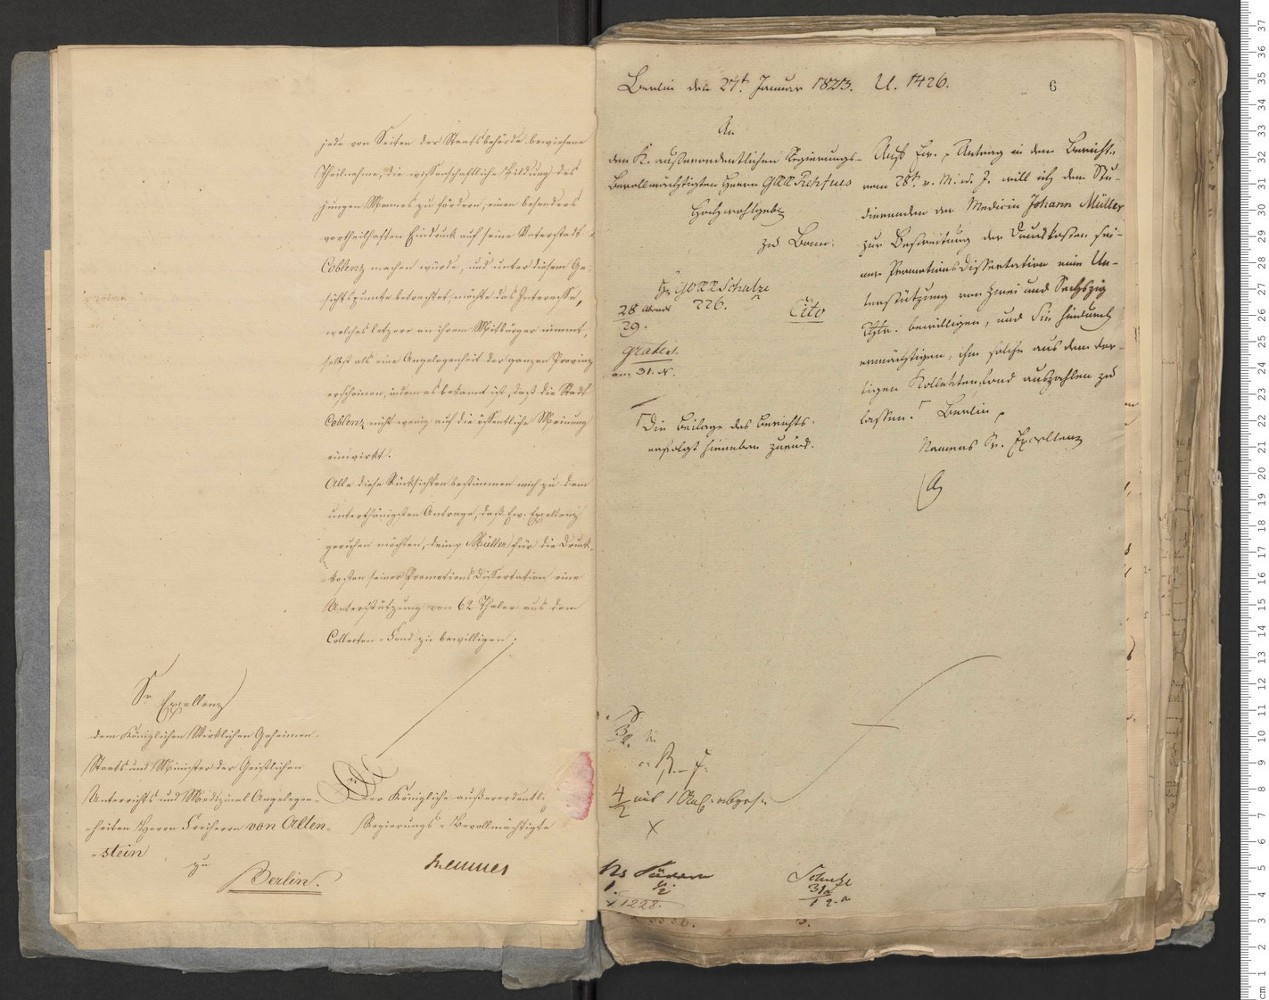 jede von Seiten der Staatsbehörde bewiesene
Theilnahme, die wissenschaftliche Bildung des
jungen Mannes zu fördern, einen besonders
vortheilhaften Eindruck auf seine Vaterstadt
Coblenz machen würde, und unter diesem Ge-
sichtspunkte betrachtet, möchte das Interesse,
welches letztere an ihrem Mitbürger nimmt,
selbst als eine Angelegenheit der ganzen Provinz
erscheinen, indem es bekannt ist, daß die Stadt
Coblenz nicht wenig auf die öffentliche Meinung
einwirkt.
Alle diese Rücksichten bestimmen mich zu dem
unterthänigsten Antrage, daß Ew. Excellenz
geruhen möchten, dem p Müller für die Druck-
kosten seiner Promotions Dissertation eine
Unterstützung von 62 Thaler aus dem
Collecten-Fond zu bewilligen.
Sr Excellenz
dem Königlichen Wirklichen Geheimen
Staats und Minister der Geistlichen
Unterrichts und Medizinal Angelegen-
heiten Herrn Freiherrn von Alten-
-stein
zu
Berlin.
Der Königliche außerordentl.
Regierungs-Bevollmächtigte
Berlin den 27t Januar 1823. U. 1426.
6
An
den K. außerordentlichen Regierungs-
Bevollmächtigten Herrn GRR Rehfues
Hochwohlgeb
zu Bonn.
H GORR Schulze
226.
28
29.
Cito
am 31.
Die Beilage des Berichts
erfolgt hierneben zurück.
Auf Ew. p Antrag in dem Bericht
vom 28t v. M. u. J. will ich dem Stu-
dierenden der Medicin Johann Müller
zur Bestreitung der Druckkosten sei-
ner Promotions Dissertation eine Un-
terstützung von Zwei und Sechszig
Rthr. bewilligen, und Sie hierdurch
ermächtigen, ihm solche aus dem dor-
tigen Kollektenfond auszahlen zu
lassen. Berlin p
Namens Sr. Excellenz
4/2
1228.
Schulze